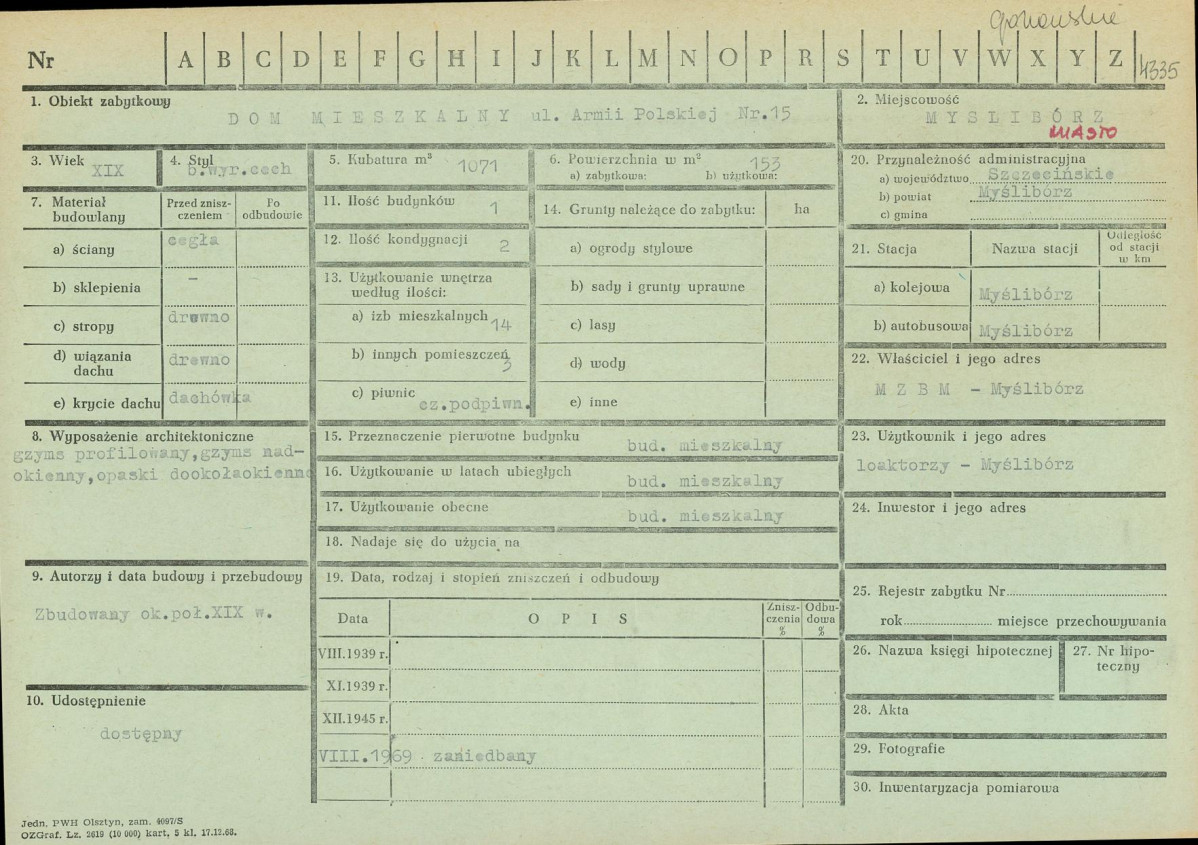 Nr A B C D E F G H I J K L M N O P R S T U V W X Y Z 4335
1. Obiekt zabytkowy
DOM MIESZKALNY ul. Armii Polskiej Nr.15
2. Miejscowość
MYSLIBÓRZ
MIASTO
3. Wiek
XIX
4. Styl
b.wyr.cech
5. Kubatura m³ 1071
6. Powierzchnia w m² 153
a) zabytkowa: b) użytkowa:
20. Przynależność administracyjna
a) województwo Szczecińskie
b) powiat Myślibórz
c) gmina
7. Materiał budowlany
Przed zniszczeniem
Po odbudowie
a) ściany cegła
b) sklepienia –
c) stropy drewno
d) wiązania dachu drewno
e) krycie dachu dachówka
11. Ilość budynków 1
12. Ilość kondygnacji 2
13. Użytkowanie wnętrza
według ilości:
a) izb mieszkalnych 14
b) innych pomieszczeń 3
c) piwnic cz.podpiwn.
14. Grunty należące do zabytku: ha
a) ogrody stylowe
b) sady i grunty uprawne
c) lasy
d) wody
e) inne
21. Stacja Nazwa stacji Odległość od stacji w km
a) kolejowa Myślibórz
b) autobusowa Myślibórz
22. Właściciel i jego adres
M Z B M - Myślibórz
8. Wyposażenie architektoniczne
gzyms profilowany,gzyms nad-
okienny,opaski dookołaokienne
15. Przeznaczenie pierwotne budynku bud. mieszkalny
16. Użytkowanie w latach ubiegłych bud. mieszkalny
17. Użytkowanie obecne bud. mieszkalny
18. Nadaje się do użycia na
23. Użytkownik i jego adres
loaktorzy - Myślibórz
24. Inwestor i jego adres
9. Autorzy i data budowy i przebudowy
Zbudowany ok.poł.XIX w.
19. Data, rodzaj i stopień zniszczeń i odbudowy
Data OPIS Zniszczenia % Odbudowa %
VIII.1939 r.
XI.1939 r.
XII.1945 r.
VIII.1969 - zaniedbany
25. Rejestr zabytku Nr
rok miejsce przechowywania
26. Nazwa księgi hipotecznej
27. Nr hipoteczny
10. Udostępnienie
dostępny
28. Akta
29. Fotografie
30. Inwentaryzacja pomiarowa
Jedn. PWH Olsztyn, zam. 4097/S
OZGraf. Lz. 2619 (10 000) kart, 5 kl. 17.12.68.